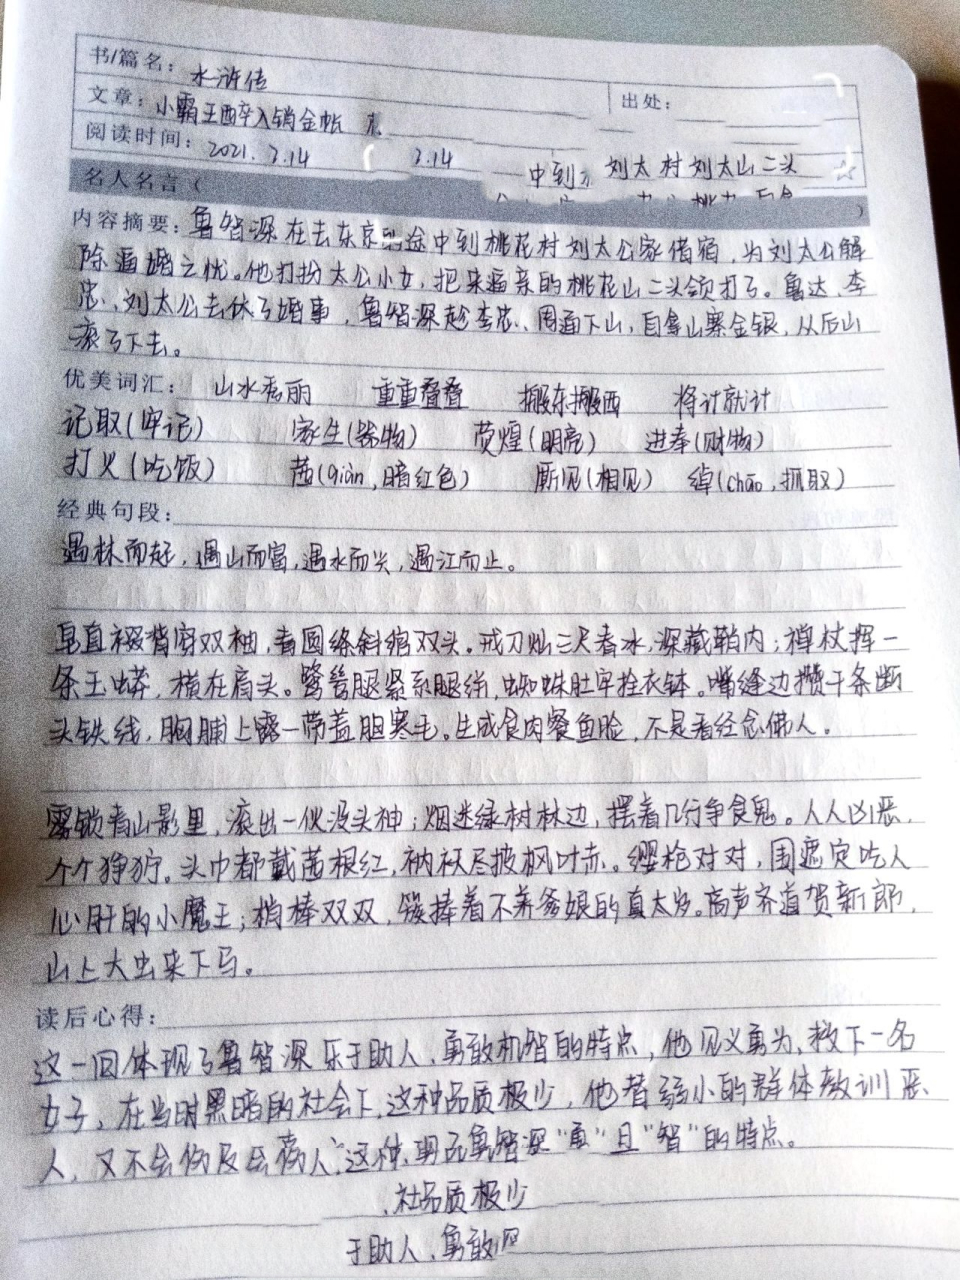 书/篇名: 水浒传
文章: 小霸王醉入销金帐 出处:
阅读时间: 2021.3.14 3.14
中到 刘太 村刘太山二头
名人名言( )
内容摘要: 鲁智深在去东京的途中到桃花村刘太公家借宿,为刘太公解
除逼婚之忧。他打扮太公小女,把来逼亲的桃花山二头领打了。鲁达、李
忠、刘太公去休了婚事,鲁智深趁李忠、周通下山,自拿山寨金银,从后山
滚了下去。
优美词汇: 山水秀丽 重重叠叠 搬东搬西 将计就计
记取(牢记) 家生(器物) 荧煌(明亮) 进奉(财物)
打火(吃饭) 茜(qiàn,暗红色) 厮见(相见) 绰(chāo,抓取)
经典句段:
遇林而起,遇山而富,遇水而兴,遇江而止。
皂直裰背穿双袖,青圆绦斜绾双头。戒刀灿三尺春冰,深藏鞘内;禅杖挥一
条玉蟒,横在肩头。鹭鸶腿紧系腿絣,蜘蛛肚牢拴衣钵。嘴缝边攒千条断
头铁线,胸脯上露一带盖胆寒毛。生成食肉餐鱼脸,不是看经念佛人。
雾锁青山影里,滚出一伙没头神;烟迷绿树林边,摆着几行争食鬼。人人凶恶,
个个狰狞。头巾都戴茜根红,衲袄尽披枫叶赤。缨枪对对,围遮定吃人
心肝的小魔王;梢棒双双,簇捧着不养爹娘的真太岁。高声齐道贺新郎,
山上大虫来下马。
读后心得:
这一回体现了鲁智深乐于助人、勇敢机智的特点,他见义勇为,救下一名
女子,在当时黑暗的社会下,这种品质极少,他替弱小的群体教训恶
人,又不会伤及 人,这种 鲁智深"勇"且"智"的特点。
社品质极少
于助人、勇敢